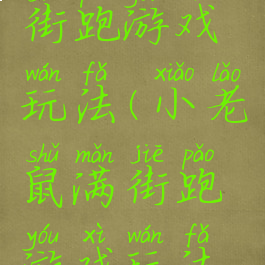 街跑游戏
wán fǎ xiǎo lǎo
玩法(小老
shǔ mǎn jiē pǎo
鼠满街跑
yóu xì wán fǎ
游戏玩法